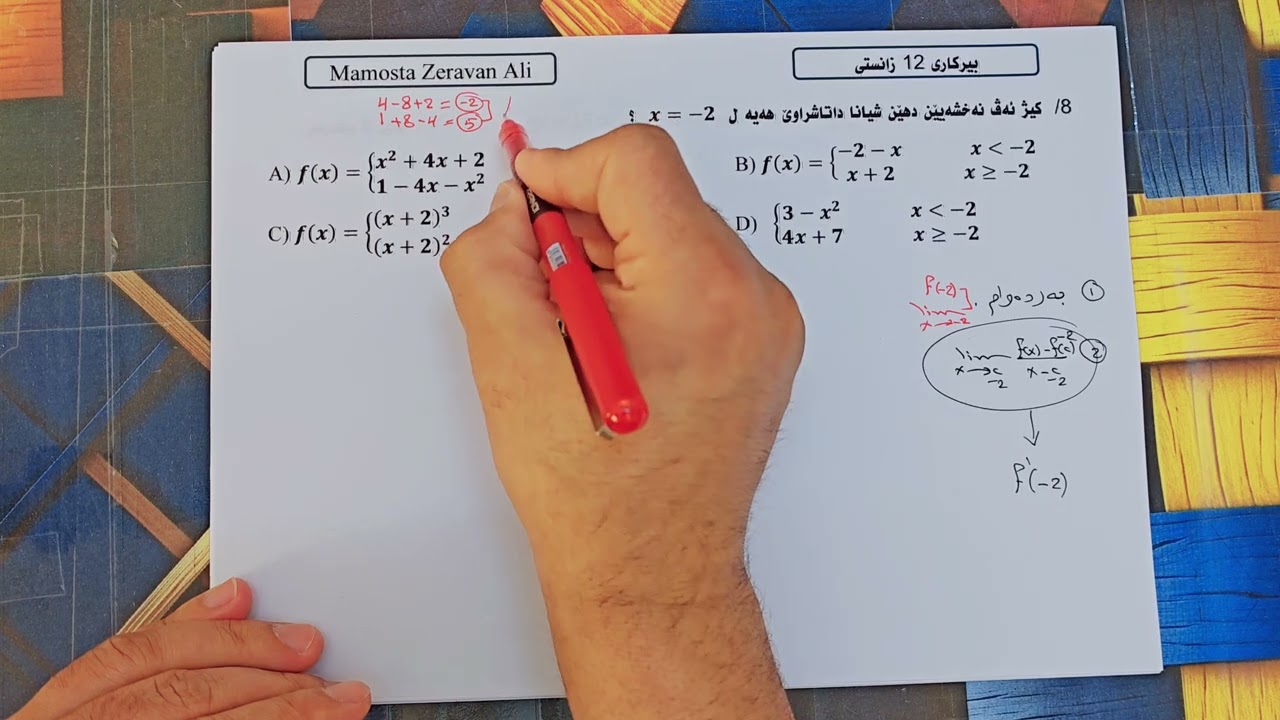 Mamosta Zeravan Ali
بیرکاری 12 زانستی
4 - 8 + 2 = -2
1 + 8 - 4 = 5
8/ کیژ ئەڤ نەخشەیێن دهێن شیانا داتاشراوێ هەیە ل x = −2 ؟
A) f(x) = { x² + 4x + 2
1 − 4x − x²
B) f(x) = { −2 − x x < −2
x + 2 x ≥ −2
C) f(x) = { (x + 2)³
(x + 2)²
D) { 3 − x² x < −2
4x + 7 x ≥ −2
① بەردەوام .
f(-2)
lim
x→-2
② lim f(x) - f(c) -2
x→c x - c
-2 -2
f'(-2)